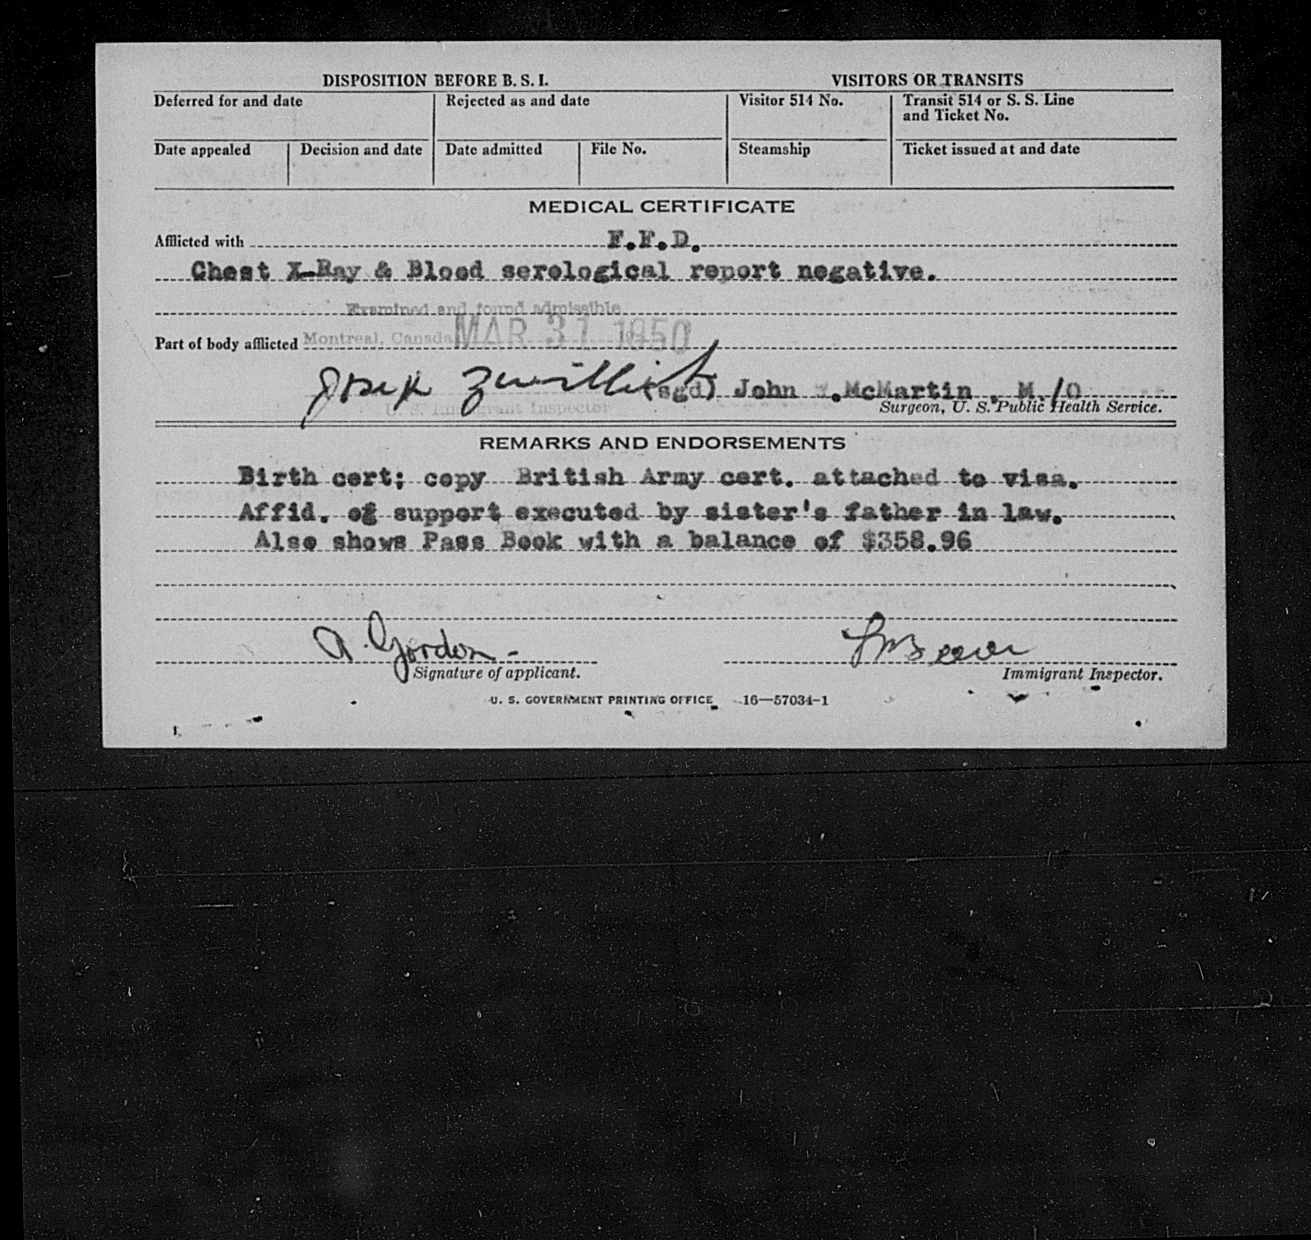 DISPOSITION BEFORE B. S. I.
VISITORS OR TRANSITS
Deferred for and date
Rejected as and date
Visitor 514 No.
Transit 514 or S. S. Line
and Ticket No.
Date appealed
Decision and date
Date admitted
File No.
Steamship
Ticket issued at and date
MEDICAL CERTIFICATE
Afflicted with F.F.D.
Chest X-Ray & Blood serological report negative.
Examined and found admissible
Part of body afflicted Montreal, Canada MAR 31 1950
Joseph (sgd) John McMartin, M.D
U. S. Immigrant Inspector
Surgeon, U. S. Public Health Service.
REMARKS AND ENDORSEMENTS
Birth cert; copy British Army cert. attached to visa.
Affid. of support executed by sister's father in law.
Also shows Pass Book with a balance of $358.96
A. Gordon
Signature of applicant.
Immigrant Inspector.
U. S. GOVERNMENT PRINTING OFFICE 16—57034-1